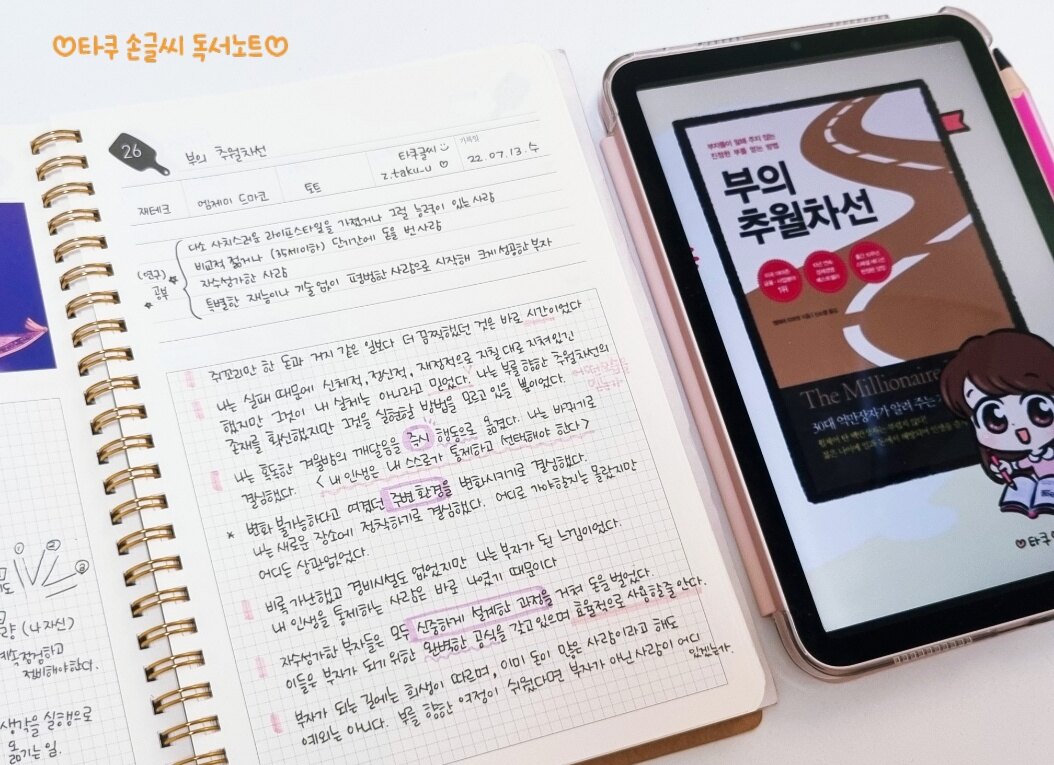 ♡타쿠 손글씨 독서노트♡
26
부의 추월차선
타쿠글씨
z.taku_u ♡
기록일
22.07.13.수
재테크
엠제이 드마코
토트
(연구)
공부
다소 사치스러운 라이프스타일을 가졌거나 그럴 능력이 있는 사람
비교적 젊거나 (35세이하) 단기간에 돈을 번 사람
자수성가한 사람
특별한 재능이나 기술 없이 평범한 사람으로 시작해 크게 성공한 부자
쥐꼬리만 한 돈과 거지 같은 일보다 더 끔찍했던 것은 바로 시간이었다
나는 실패 때문에 신체적, 정신적, 재정적으로 지칠대로 지쳐있긴
했지만 그것이 내 실체는 아니라고 믿었다. 나는 부를 향한 추월차선의
존재를 확신했지만 그것을 실현할 방법을 모르고 있을 뿐이었다.
나는 혹독한 겨울밤의 깨달음을 즉시 행동으로 옮겼다. 나는 바뀌기로
결심했다. < 내 인생은 내 스스로가 통제하고 선택해야 한다>
* 변화 불가능하다고 여겼던 주변 환경을 변화시키기로 결심했다.
나는 새로운 장소에 정착하기로 결심했다. 어디로 가야할지는 몰랐지만
어디든 상관없었다.
비록 가난했고 경비시설도 없었지만 나는 부자가 된 느낌이었다.
내 인생을 통제하는 사람은 바로 나였기 때문이다
자수성가한 부자들은 모두 신중하게 설계한 과정을 거쳐 돈을 벌었다.
이들은 부자가 되기 위한 완벽한 공식을 갖고 있으며 효율적으로 사용할줄 안다.
부자가 되는 길에는 희생이 따르며, 이미 돈이 많은 사람이라고 해도
예외는 아니다. 부를 향한 여정이 쉬웠다면 부자가 아닌 사람이 어디
있겠는가.
①
②
③
량 (나 자신)
계속 점검하고
정비해야한다.
생각을 실행으로
옮기는 일.
부자들이 말해 주지 않는
진정한 부를 얻는 방법
부의
추월차선
1위
The Millionaire
30대 억만장자가 알려 주는
♡타쿠